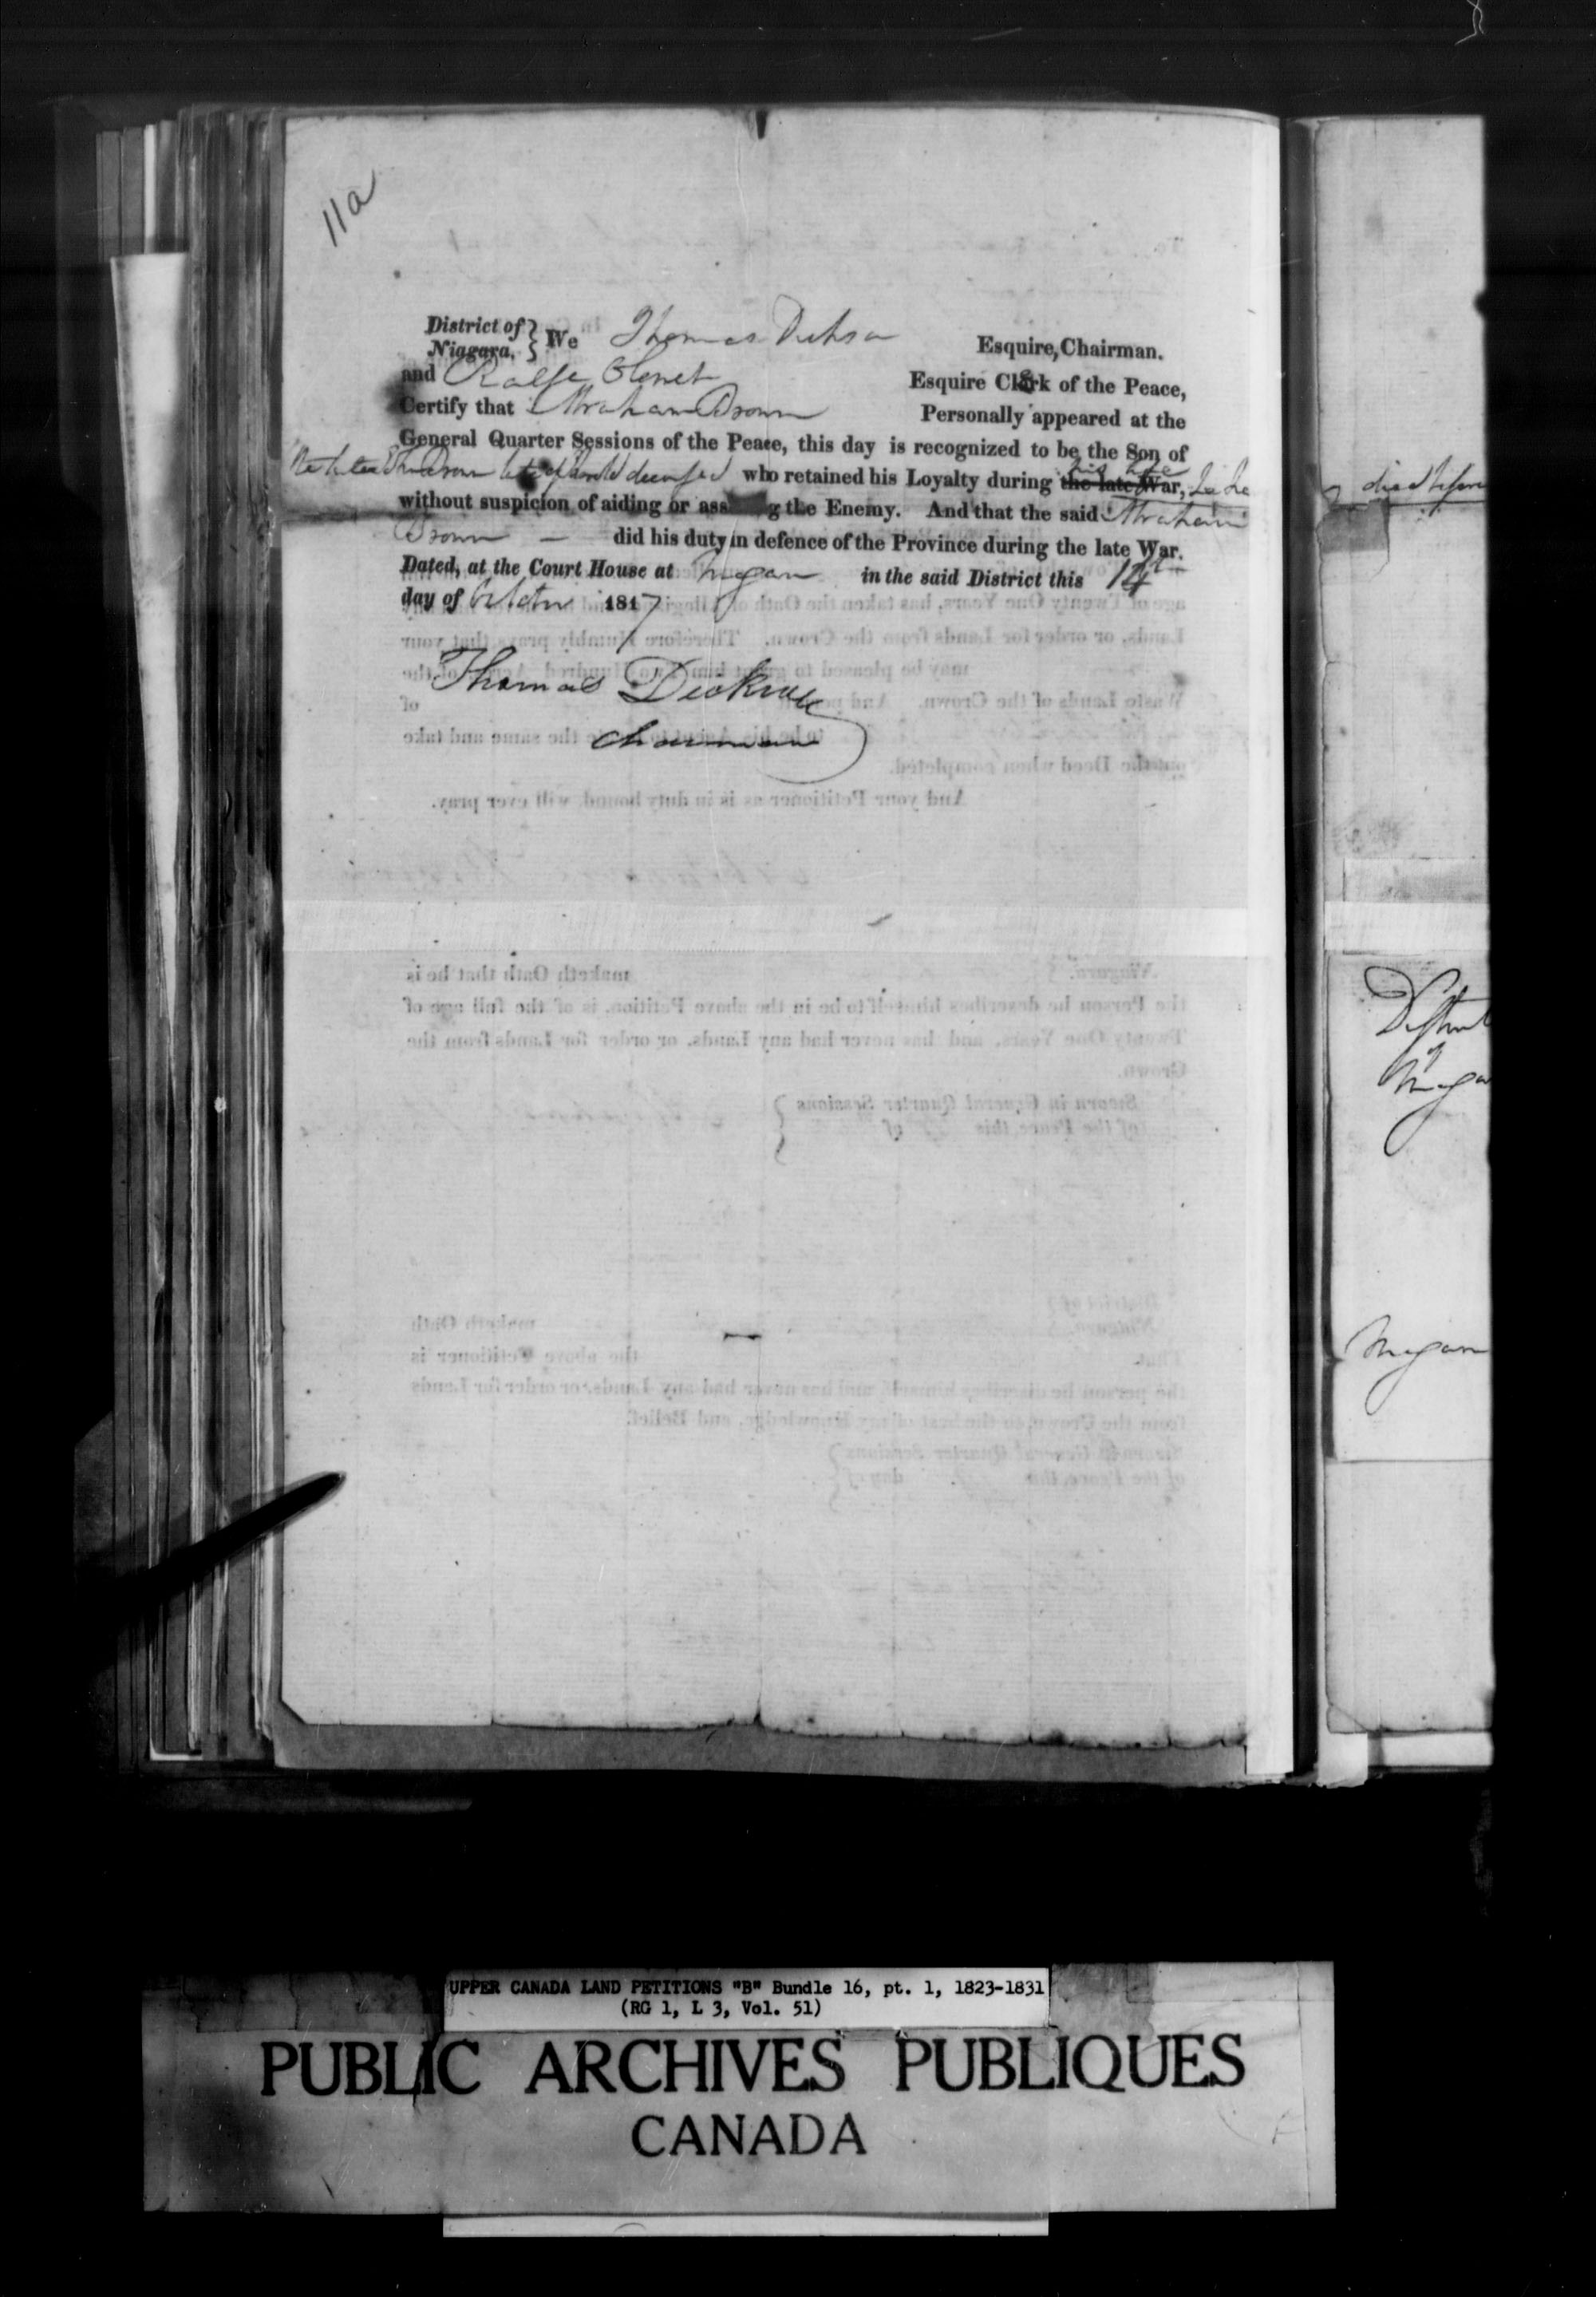 11a
District of Niagara. } We Thomas Dickson Esquire, Chairman.
and Ralfe Clench Esquire Clerk of the Peace,
Certify that Abraham Brown Personally appeared at the
General Quarter Sessions of the Peace, this day is recognized to be the Son of
the late Brown deceased who retained his Loyalty during the late War, his life
without suspicion of aiding or assisting the Enemy. And that the said Abraham
Brown — did his duty in defence of the Province during the late War.
Dated, at the Court House at Niagara in the said District this 14th
day of October 1817
Thomas Dickson
Chairman
died before
District
of
Niaga
Niagara
UPPER CANADA LAND PETITIONS "B" Bundle 16, pt. 1, 1823-1831
(RG 1, L 3, Vol. 51)
PUBLIC ARCHIVES PUBLIQUES
CANADA